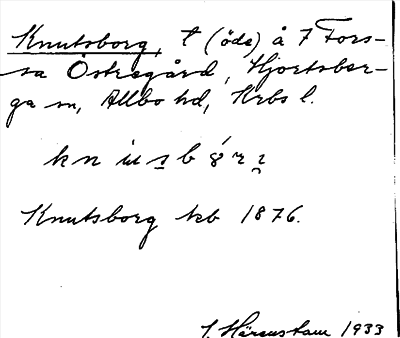 Knutsborg, t (öde) å 7 Fors-
sa Östregård, Hjortsber-
ga sn, Allbo hd, Krbs l.
Knutsborg kb 1876.
J. Härenstam 1933